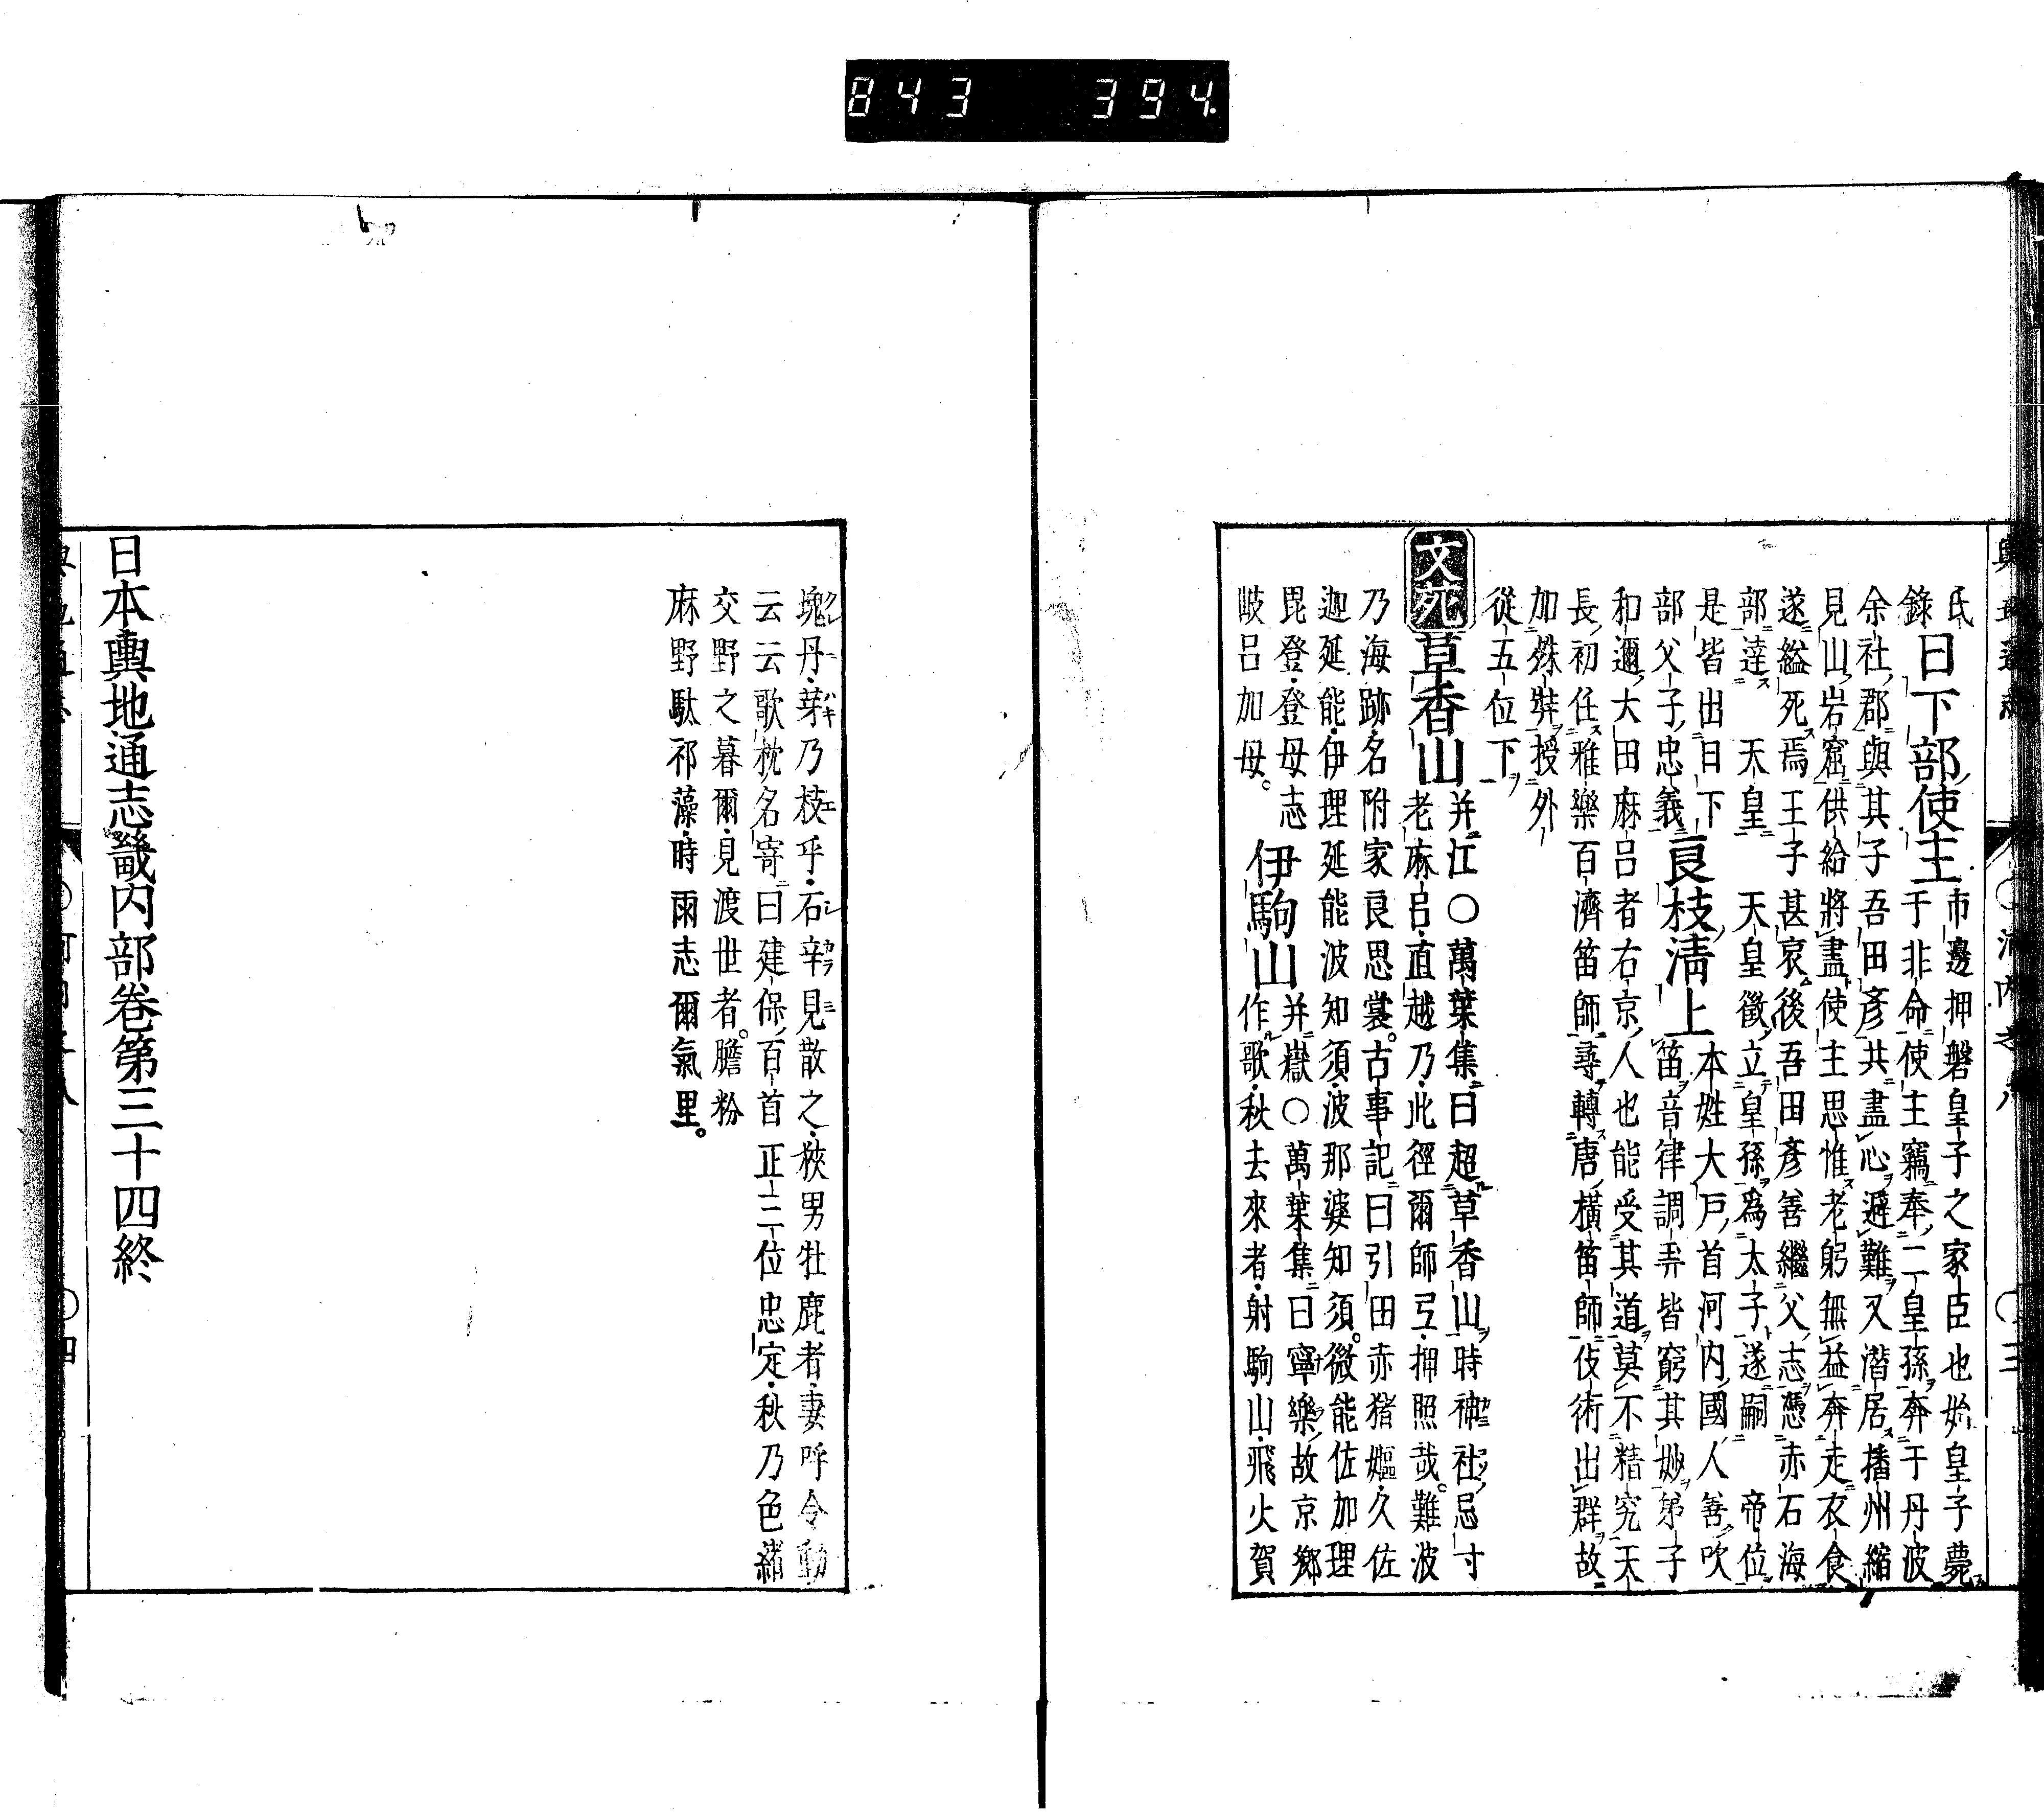 843 394
氏
錄
日下部使主
市邊押磐皇子之家臣也始皇子薨
于非命使主竊奉二皇孫奔于丹波
余社郡與其子吾田彥共盡心避難又潛居播州縮
見山岩窟供給將盡使主思惟老躬無益奔走衣食
遂縊死焉王子甚哀後吾田彥善繼父志憑赤石海
部達　天皇　天皇徵立皇孫爲太子遂嗣　帝位
是皆出日下
部父子忠義
良枝清上
本姓大戶首河內國人善吹
笛音律調弄皆窮其妙弟子
和邇大田麻呂者右京人也能受其道莫不精究天
長初任雅樂百濟笛師尋轉唐橫笛師伎術出群故
加殊弉授外
從五位下
文苑
草香山
并江○萬葉集曰超草香山時神社忌寸
老麻呂直越乃此徑爾師弖押照哉難波
乃海跡名附家良思裳古事記曰引田赤猪嫗久佐
迦延能伊理延能波知須波那婆知須微能佐加理
毘登登母志
岐呂加母
伊駒山
并嶽○萬葉集曰寧樂故京鄉
作歌秋去來者射駒山飛火賀
塊丹芽乃枝乎石辛見散之狹男牡鹿者妻呼令動
云云歌枕名寄曰建保百首正三位忠定秋乃色緒
交野之暮爾見渡世者膽粉
麻野駄祁藻時雨志爾氣里
日本輿地通志畿内部卷第三十四終